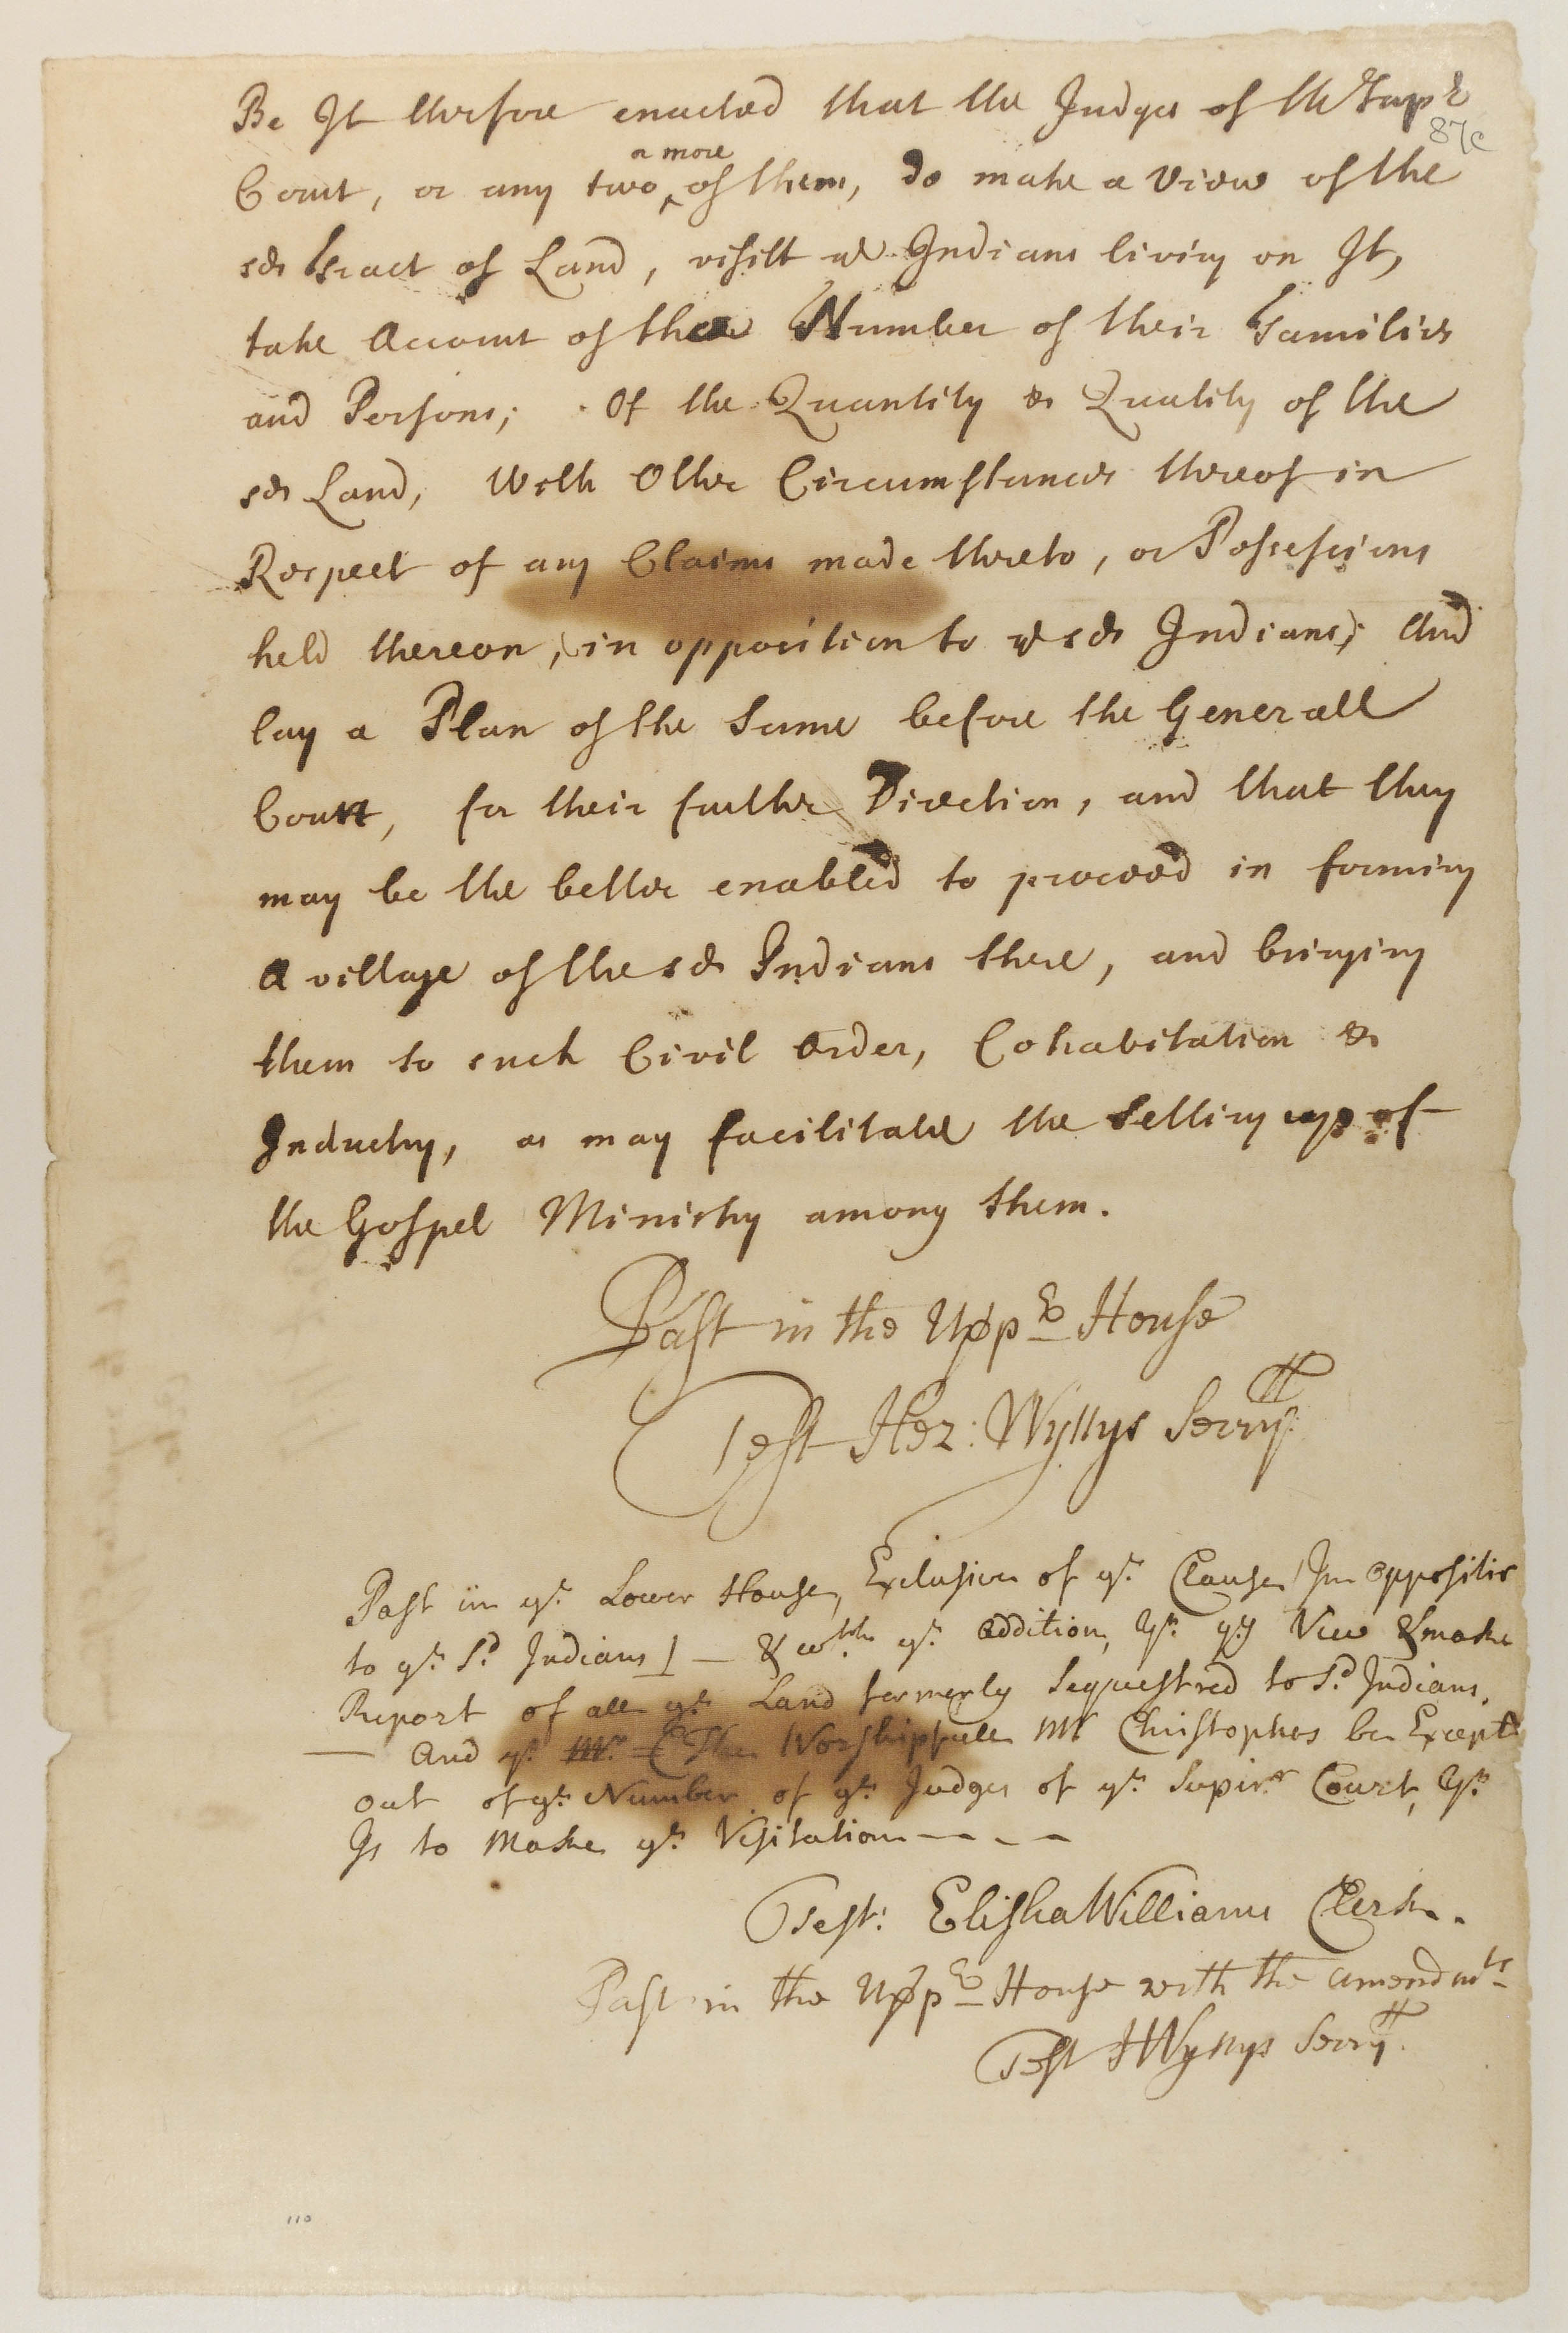 Be It therfore enacted that the Judges of the Supr
87c
Court, or any two or more of them, do make a View of the
sd Tract of Land, visitt ye Indians living on It,
take Account of the Number of their Families
and Persons; Of the Quantity & Quality of the
sd Land, With Other Circumstances thereof in
Respect of any Claims made thereto, or Possessions
held thereon, (in opposition to ye sd Indians); And
lay a Plan of the Same before the Generall
Court, for their further Direction, and that they
may be the better enabled to proceed in forming
A village of the sd Indians there, and bringing
them to such Civil Order, Cohabitation &
Industry, as may facilitate the Setting up of
the Gospel Ministry among them.
Past in the Uppr House
Test Hez: Wyllys Secry
Past in ye Lower House, Exclusive of ye Clause (In oppositio
to ye Sd Indians) — & wth ye addition, yt yy View & make
Report of all ye Land formerly Sequestred to Sd Indians.
— And yt The Worshipfull Mr Christophes be Exceptd
out of ye Number of ye Judges of ye Supirr Court, yt
Is to Make ye Visitation — — - —
Test: Elisha Williams Clerk.
Past in the Uppr House with the amendmts
Test HWyllys Secry
110